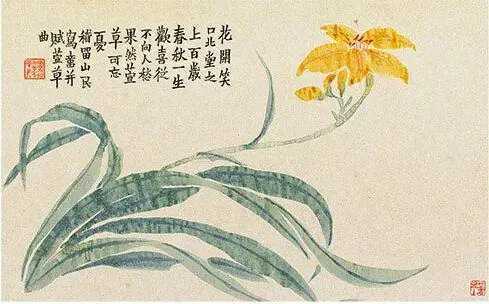 花開笑
口北堂之
上百歲
春秋一生
歡喜從
不向人愁
果然萱
草可忘
憂
稽留山民
寫并
賦萱草
曲